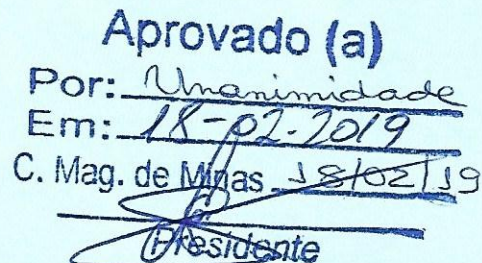 Aprovado (a)
Por: Unanimidade
Em: 18-02-2019
C. Mag. de Minas 18/02/19
Presidente